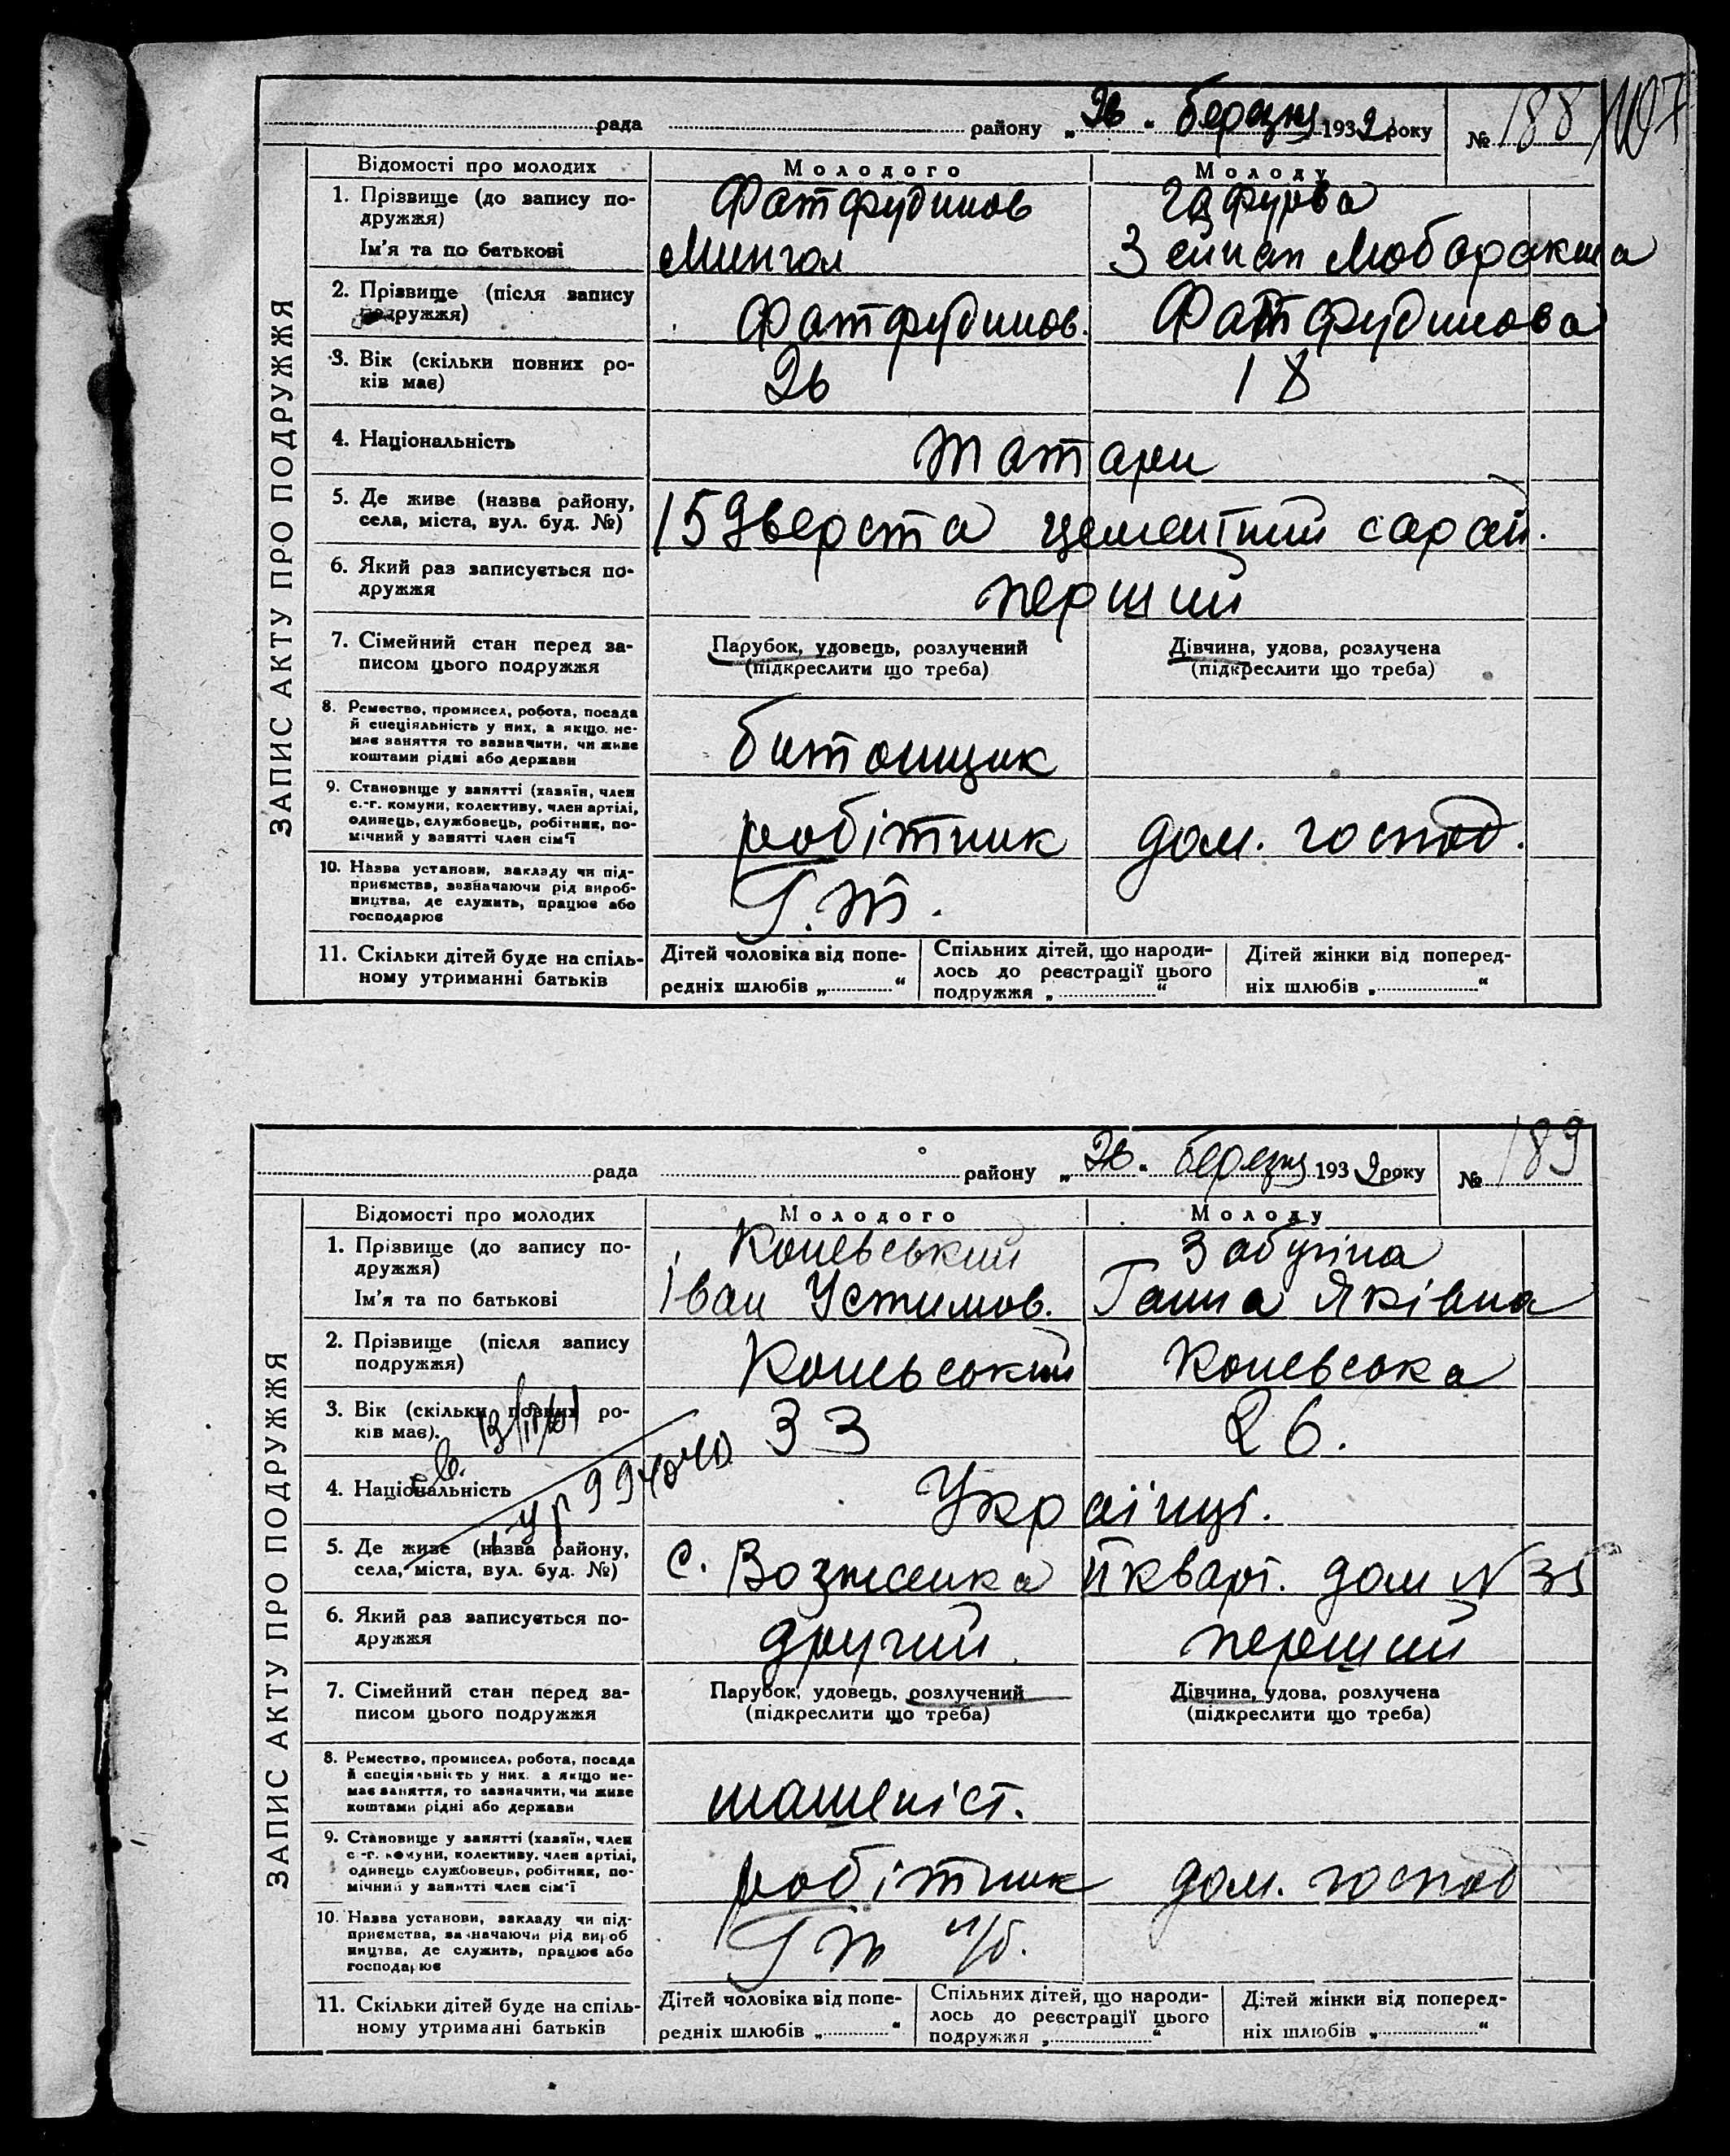 рада району „26“ березня 1932 року № 188 107
ЗАПИС АКТУ ПРО ПОДРУЖЖЯ
Відомості про молодих Молодого Молоду
1. Прізвище (до запису по-
дружжя) Фатфудинов Гафурова
Ім'я та по батькові Мингал Зейнап Мобаракша
2. Прізвище (після запису
подружжя) Фатфудинов. Фатфудинова
3. Вік (скільки повних ро-
ків має) 26 18
4. Національність татари
5. Де живе (назва району,
села, міста, вул. буд. №) 159 верста цементний сарай.
6. Який раз записується по-
дружжя перший
7. Сімейний стан перед за-
писом цього подружжя
Парубок, удовець, розлучений Дівчина, удова, розлучена
(підкреслити що треба) (підкреслити що треба)
8. Ремество, промисел, робота, посада
й спеціяльність у них, а якщо не-
має заняття то зазначити, чи живе
коштами рідні або держави битонщик
9. Становище у занятті (хазяїн, член
с.-г. комуни, колективу, член артілі,
одинець, службовець, робітник, по-
мічний у занятті член сім'ї робітник дом. господ.
10. Назва установи, закладу чи під-
приємства, зазначаючи рід вироб-
ництва, де служить, працює або
господарює
11. Скільки дітей буде на спіль-
ному утриманні батьків
Дітей чоловіка від попе-
редніх шлюбів „ “
Спільних дітей, що народи-
лось до реєстрації цього
подружжя „ “
Дітей жінки від поперед-
ніх шлюбів „ “
рада району „26“ березня 1932 року № 189
ЗАПИС АКТУ ПРО ПОДРУЖЖЯ
Відомості про молодих Молодого Молоду
1. Прізвище (до запису по-
дружжя) Коневський Забугіна
Ім'я та по батькові Іван Устимов. Ганна Яківна
2. Прізвище (після запису
подружжя) Коневський Коневська
3. Вік (скільки повних ро-
ків має). 33 26.
4. Національність Українці.
5. Де живе (назва району,
села, міста, вул. буд. №) с. Вознсенка II кварт. дом N 35
6. Який раз записується по-
дружжя другий перший
7. Сімейний стан перед за-
писом цього подружжя
Парубок, удовець, розлучений Дівчина, удова, розлучена
(підкреслити що треба) (підкреслити що треба)
8. Ремество, промисел, робота, посада
й спеціяльність у них. а якщо не-
має заняття, то зазначити, чи живе
коштами рідні або держави машеніст.
9. Становище у занятті (хазяїн, член
с.-г. комуни, колективу. член артілі,
одинець службовець, робітник, по-
мічний у занятті член сім'ї робітник дом. господ
10. Назва установи, закладу чи під-
приємства, зазначаючи рід вироб
ництва, де служить, працює або
господарює
11. Скільки дітей буде на спіль-
ному утриманні батьків
Дітей чоловіка від попе-
редніх шлюбів „ “
Спільних дітей, що народи-
лось до реєстрації цього
подружжя „ “
Дітей жінки від поперед-
ніх шлюбів „ “